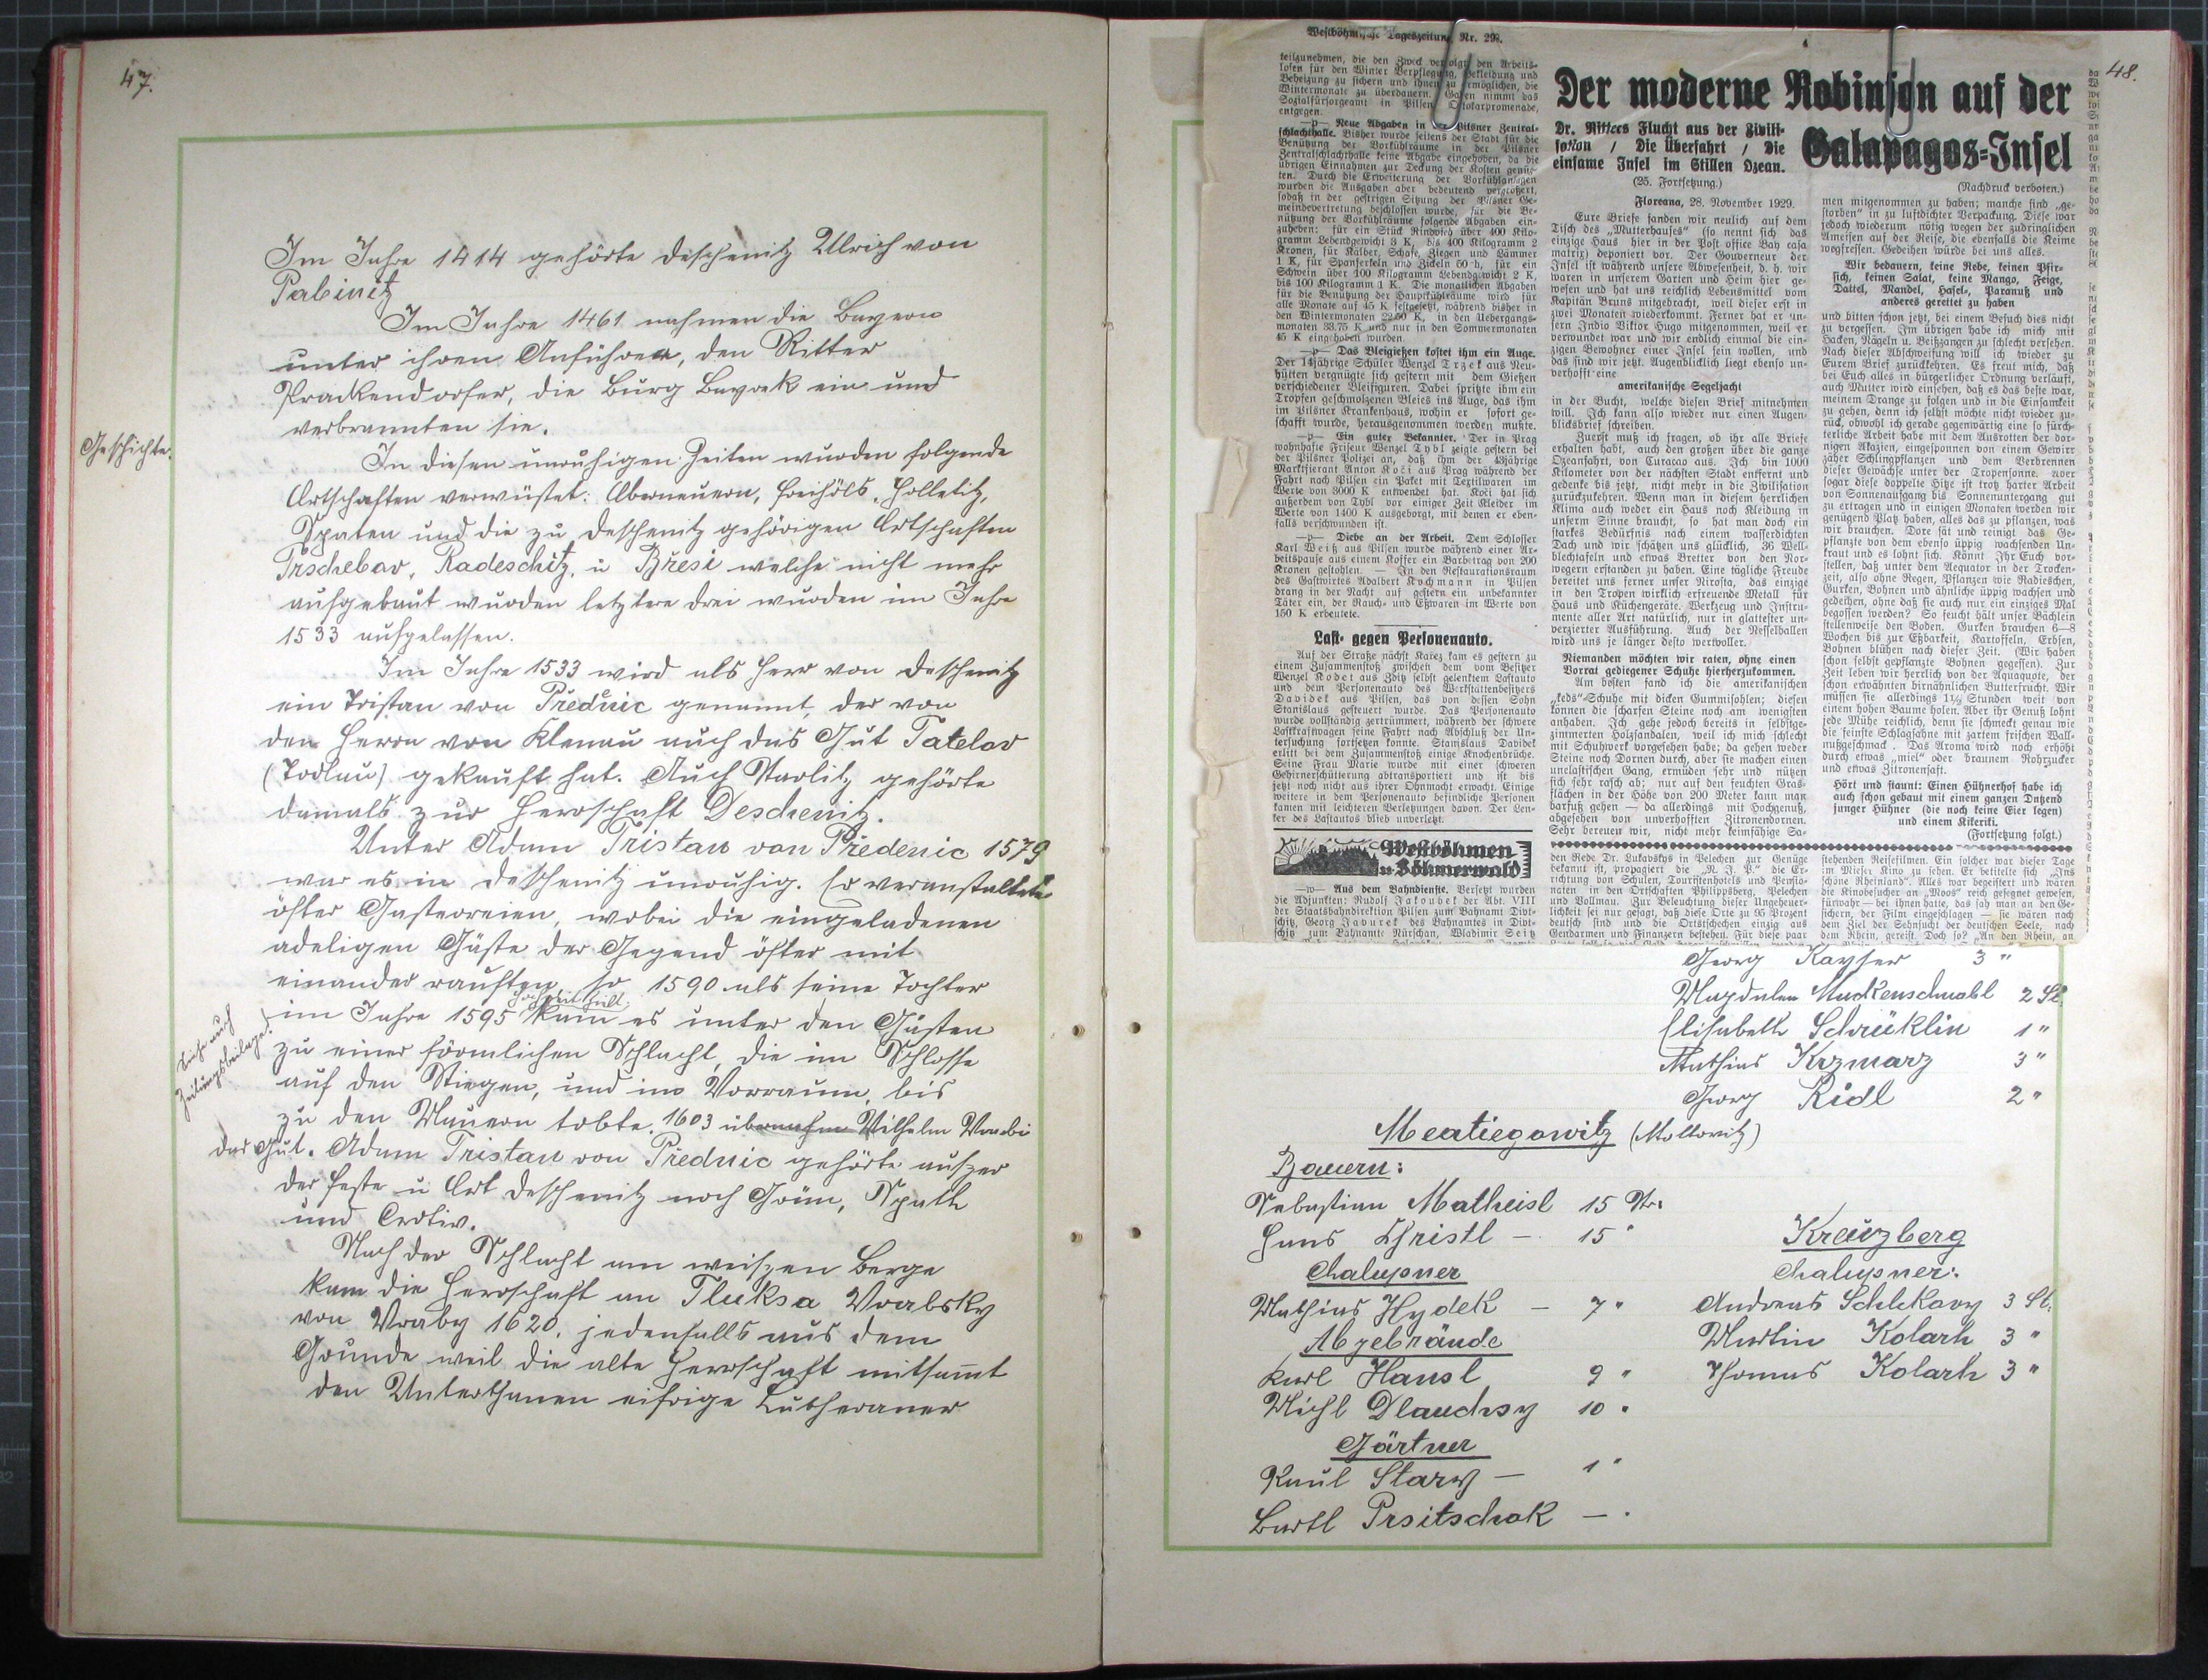 47.
Im Jahre 1414 gehörte Deschenitz Ulrich von
Pabinitz
Im Jahre 1461 nahmen die Bayern
unter ihren Anführer, den Ritter
Prackendorfer, die Burg Bayrek ein und
verbrannten sie.
Geschichte.
In diesen unruhigen Zeiten wurden folgende
Ortschaften verwüstet: Oberneuern, Freihöls, Holletitz,
Spaten und die zu Deschenitz gehörigen Ortschaften
Trschebar, Radeschitz, u Břesi welche nicht mehr
aufgebaut wurden letztere drei wurden im Jahre
1533 aufgelassen.
Im Jahre 1533 wird als Herr von Deschenitz
ein Tristan von Přednic genannt, der von
den Herrn von Klenau auch das Gut Tatelov
(Todlau) gekauft hat. Auch Starlitz gehörte
damals zur Herrschaft Deschenitz.
Unter Adam Tristan von Předenic 1579
war es in Deschenitz unruhig. Er veranstaltete
öfter Gastereien, wobei die eingeladenen
adeligen Gäste der Gegend öfter mit
einander rauften so 1590 als seine Tochter
Hochzeit hielt.
im Jahre 1595 kam es unter den Gästen
Siehe auch
Zeitungsbeilage!
zu einer förmlichen Schlacht, die im Schlosse
auf den Stiegen, und im Vorraum, bis
zu den Mauern tobte. 1603 übernahm Wilhelm Wrabi
das Gut. Adam Tristan von Přednic gehörte außer
der Feste u Ort Deschenitz noch Grün, Spath
und
Nach der Schlacht am weißen Berge
kam die Herrschaft an Tluksa Vrabsky
von Vraby 1620. jedenfalls aus dem
Grunde weil die alte Herrschaft mitsamt
den Unterthanen eifrige Lutheraner
48.
Westböhmische Tageszeitung Nr. 29
teilzunehmen, die den Zweck verfolgt, den Arbeits-
losen für den Winter Verpflegung, Bekleidung und
Beheizung zu sichern und ihnen zu ermöglichen, die
Wintermonate zu überdauern. Gaben nimmt das
Sozialfürsorgeamt in Pilsen, Ottokarpromenade,
entgegen.
—p— Neue Abgaben in der Pilsner Zentral-
schlachthalle. Bisher wurde seitens der Stadt für die
Benützung der Vorkühlräume in der Pilsner
Zentralschlachthalle keine Abgabe eingehoben, da die
übrigen Einnahmen zur Deckung der Kosten genüg-
ten. Durch die Erweiterung der Vorkühlanlagen
wurden die Ausgaben aber bedeutend vergrößert,
sodaß in der gestrigen Sitzung der Pilsner Ge-
meindevertretung beschlossen wurde, für die Be-
nützung der Vorkühlräume folgende Abgaben ein-
zuheben: für ein Stück Rindvieh über 400 Kilo-
gramm Lebendgewicht 3 K, bis 400 Kilogramm 2
Kronen, für Kälber, Schafe, Ziegen und Lämmer
1 K, für Spanferkeln und Zickeln 50 h, für ein
Schwein über 100 Kilogramm Lebendgewicht 2 K,
bis 100 Kilogramm 1 K. Die monatlichen Abgaben
für die Benützung der Hauptkühlräume wird für
alle Monate auf 45 K festgesetzt, während bisher in
den Wintermonaten 22.50 K, in den Uebergangs-
monaten 33.75 K und nur in den Sommermonaten
45 K eingehoben wurden.
—p— Das Bleigießen kostet ihm ein Auge.
Der 14jährige Schüler Wenzel Trzek aus Neu-
hütten vergnügte sich gestern mit dem Gießen
verschiedener Bleifiguren. Dabei spritzte ihm ein
Tropfen geschmolzenen Bleies ins Auge, das ihm
im Pilsner Krankenhaus, wohin er sofort ge-
schafft wurde, herausgenommen werden mußte.
—p— Ein guter Bekannter. Der in Prag
wohnhafte Friseur Wenzel Tybl zeigte gestern bei
der Pilsner Polizei an, daß ihm der 43jährige
Marktfierant Anton Koči aus Prag während der
Fahrt nach Pilsen ein Paket mit Textilwaren im
Werte von 3000 K entwendet hat. Koči hat sich
außerdem von Tybl vor einiger Zeit Kleider im
Werte von 1400 K ausgeborgt, mit denen er eben-
falls verschwunden ist.
—p— Diebe an der Arbeit. Dem Schlosser
Karl Weiß aus Pilsen wurde während einer Ar-
beitspause aus einem Koffer ein Barbetrag von 200
Kronen gestohlen. — In den Restaurationsraum
des Gastwirtes Adalbert Kochmann in Pilsen
drang in der Nacht auf gestern ein unbekannter
Täter ein, der Rauch- und Eßwaren im Werte von
150 K erbeutete.
Last- gegen Personenauto.
Auf der Straße nächst Karez kam es gestern zu
einem Zusammenstoß zwischen dem vom Besitzer
Wenzel Kodet aus Zditz selbst gelenktem Lastauto
und dem Personenauto des Werkstättenbesitzers
Davidek aus Pilsen, das von dessen Sohn
Stanislaus gesteuert wurde. Das Personenauto
wurde vollständig zertrümmert, während der schwere
Lastkraftwagen seine Fahrt nach Abschluß der Un-
tersuchung fortsetzen konnte. Stanislaus Davidek
erlitt bei dem Zusammenstoß einige Knochenbrüche.
Seine Frau Marie wurde mit einer schweren
Gehirnerschütterung abtransportiert und ist bis
jetzt noch nicht aus ihrer Ohnmacht erwacht. Einige
weitere in dem Personenauto befindliche Personen
kamen mit leichteren Verletzungen davon. Der Len-
ker des Lastautos blieb unverletzt.
Westböhmen
u. Böhmerwald
—w— Aus dem Bahndienste. Versetzt wurden
die Adjunkten: Rudolf Jakoubek der Abt. VIII
der Staatsbahndirektion Pilsen zum Bahnamt Divi-
schitz, Georg Javurek des Bahnamtes in Divi-
schitz zum Bahnamte Nürschan, Wladimir Seitz
Der moderne Robinson auf der
Galapagos-Insel
Dr. Ritters Flucht aus der Zivili-
sation / Die Überfahrt / Die
einsame Insel im Stillen Ozean.
(25. Fortsetzung.)
(Nachdruck verboten.)
Floreana, 28. November 1929.
Eure Briefe fanden wir neulich auf dem
Tisch des „Mutterhauses" (so nennt sich das
einzige Haus hier in der Post office Bay casa
matrix) deponiert vor. Der Gouverneur der
Insel ist während unsere Abwesenheit, d. h. wir
waren in unserem Garten und Heim hier ge-
wesen und hat uns reichlich Lebensmittel vom
Kapitän Bruns mitgebracht, weil dieser erst in
zwei Monaten wiederkommt. Ferner hat er un-
sern Indio Viktor Hugo mitgenommen, weil er
verwundet war und wir endlich einmal die ein-
zigen Bewohner einer Insel sein wollen, und
das sind wir jetzt. Augenblicklich liegt ebenso un-
verhofft eine
amerikanische Segeljacht
in der Bucht, welche diesen Brief mitnehmen
will. Ich kann also wieder nur einen Augen-
blicksbrief schreiben.
Zuerst muß ich fragen, ob ihr alle Briefe
erhalten habt, auch den großen über die ganze
Ozeanfahrt, von Curacao aus. Ich bin 1000
Kilometer von der nächsten Stadt entfernt und
gedenke bis jetzt, nicht mehr in die Zivilisation
zurückzukehren. Wenn man in diesem herrlichen
Klima auch weder ein Haus noch Kleidung in
unserm Sinne braucht, so hat man doch ein
starkes Bedürfnis nach einem wasserdichten
Dach und wir schätzen uns glücklich, 36 Well-
blechtafeln und etwas Bretter von den Nor-
wegern erstanden zu haben. Eine tägliche Freude
bereitet uns ferner unser Nirosta, das einzige
in den Tropen wirklich erfreuende Metall für
Haus und Küchengeräte. Werkzeug und Instru-
mente aller Art natürlich, nur in glattester un-
verzierter Ausführung. Auch der Nesselballen
wird uns je länger desto wertvoller.
Niemanden möchten wir raten, ohne einen
Vorrat gediegener Schuhe hierherzukommen.
Am besten fand ich die amerikanischen
„keds"-Schuhe mit dicken Gummisohlen; diesen
können die scharfen Steine noch am wenigsten
anhaben. Ich gehe jedoch bereits in selbstge-
zimmerten Holzsandalen, weil ich mich schlecht
mit Schuhwerk vorgesehen habe; da gehen weder
Steine noch Dornen durch, aber sie machen einen
unelastischen Gang, ermüden sehr und nützen
sich sehr rasch ab; nur auf den feuchten Gras-
flächen in der Höhe von 200 Meter kann man
barfuß gehen — da allerdings mit Hochgenuß,
abgesehen von unverhofften Zitronendornen.
Sehr bereuen wir, nicht mehr keimfähige Sa-
men mitgenommen zu haben; manche sind „ge-
storben" in zu luftdichter Verpackung. Diese war
jedoch wiederum nötig wegen der zudringlichen
Ameisen auf der Reise, die ebenfalls die Keime
wegfressen. Gedeihen würde bei uns alles.
Wir bedauern, keine Rebe, keinen Pfir-
sich, keinen Salat, keine Mango, Feige,
Dattel, Mandel, Hasel-, Paranuß und
anderes gerettet zu haben
und bitten schon jetzt, bei einem Besuch dies nicht
zu vergessen. Im übrigen habe ich mich mit
Hacken, Nägeln u. Beißzangen zu schlecht versehen.
Nach dieser Abschweifung will ich wieder zu
Eurem Brief zurückkehren. Es freut mich, daß
bei Euch alles in bürgerlicher Ordnung verläuft,
auch Mutter wird einsehen, daß es das beste war,
meinem Drange zu folgen und in die Einsamkeit
zu gehen, denn ich selbst möchte nicht wieder zu-
rück, obwohl ich gerade gegenwärtig eine so fürch-
terliche Arbeit habe mit dem Ausrotten der dor-
nigen Akazien, eingesponnen von einem Gewirr
zäher Schlingpflanzen und dem Verbrennen
dieser Gewächse unter der Tropensonne. Aber
sogar diese doppelte Hitze ist trotz harter Arbeit
von Sonnenaufgang bis Sonnenuntergang gut
zu ertragen und in einigen Monaten werden wir
genügend Platz haben, alles das zu pflanzen, was
wir brauchen. Dore sät und reinigt das Ge-
pflanzte von dem ebenso üppig wachsenden Un-
kraut und es lohnt sich. Könnt Ihr Euch vor-
stellen, daß unter dem Aequator in der Trocken-
zeit, also ohne Regen, Pflanzen wie Radieschen,
Gurken, Bohnen und ähnliche üppig wachsen und
gedeihen, ohne daß sie auch nur ein einziges Mal
begossen werden? So feucht hält unser Bächlein
stellenweise den Boden. Gurken brauchen 6—8
Wochen bis zur Eßbarkeit, Kartoffeln, Erbsen,
Bohnen blühen nach dieser Zeit. (Wir haben
schon selbst gepflanzte Bohnen gegessen). Zur
Zeit leben wir herrlich von der Aguaquote, der
schon erwähnten birnähnlichen Butterfrucht. Wir
müssen sie allerdings 1½ Stunden weit von
einem hohen Baume holen. Aber ihr Genuß lohnt
jede Mühe reichlich, denn sie schmeckt genau wie
die feinste Schlagsahne mit zartem frischen Wall-
nußgeschmack. Das Aroma wird noch erhöht
durch etwas „miel" oder braunem Rohrzucker
und etwas Zitronensaft.
Hört und staunt: Einen Hühnerhof habe ich
auch schon gebaut mit einem ganzen Dutzend
junger Hühner (die noch keine Eier legen)
und einem Kikeriki.
(Fortsetzung folgt.)
den Rede Dr. Lukavskys in Pelechen zur Genüge
bekannt ist, propagiert die „N. J. P." die Er-
richtung von Schulen, Touristenhotels und Pensio-
naten in den Ortschaften Philippsberg, Pelechen
und Vollmau. Zur Beleuchtung dieser Ungeheuer-
lichkeit sei nur gesagt, daß diese Orte zu 95 Prozent
deutsch sind und die Ortstschechen einzig aus
Gendarmen und Finanzern bestehen. Für diese paar
stehenden Reisefilmen. Ein solcher war dieser Tage
im Mieser Kino zu sehen. Er betitelte sich „Ins
schöne Rheinland". Alles war begeistert und wären
die Kinobesucher an „Moos" reich gesegnet gewesen,
fürwahr — bei ihnen hatte, das sah man an den Ge-
sichern, der Film eingeschlagen — sie wären nach
dem Ziel der Sehnsucht der deutschen Seele, nach
dem Rhein, gereist. Doch so? „An den Rhein, an
Georg Kayser 3 "
Magdalen Muckenschnabl 2 St.
Elisabeth Schrücklin 1 "
Mathias Krzmarz 3 "
Georg Ridl 2 "
Meatiegowitz (Mollowitz)
Bauern:
Sebastian Matheisl 15 Str.
Hans Christl — 15 "
Chalupner
Mathias Hydek — 7 "
Abgebrände
Karl Hansl 9 "
Michl Dlauchsy 10 "
Gärtner
Paul Starz — 1 "
Bartl Prsitschak — "
Kreuzberg
Chalupner:
Andreas Schlekavy 3 St.
Martin Kolarh 3 "
Thomas Kolarh 3 "